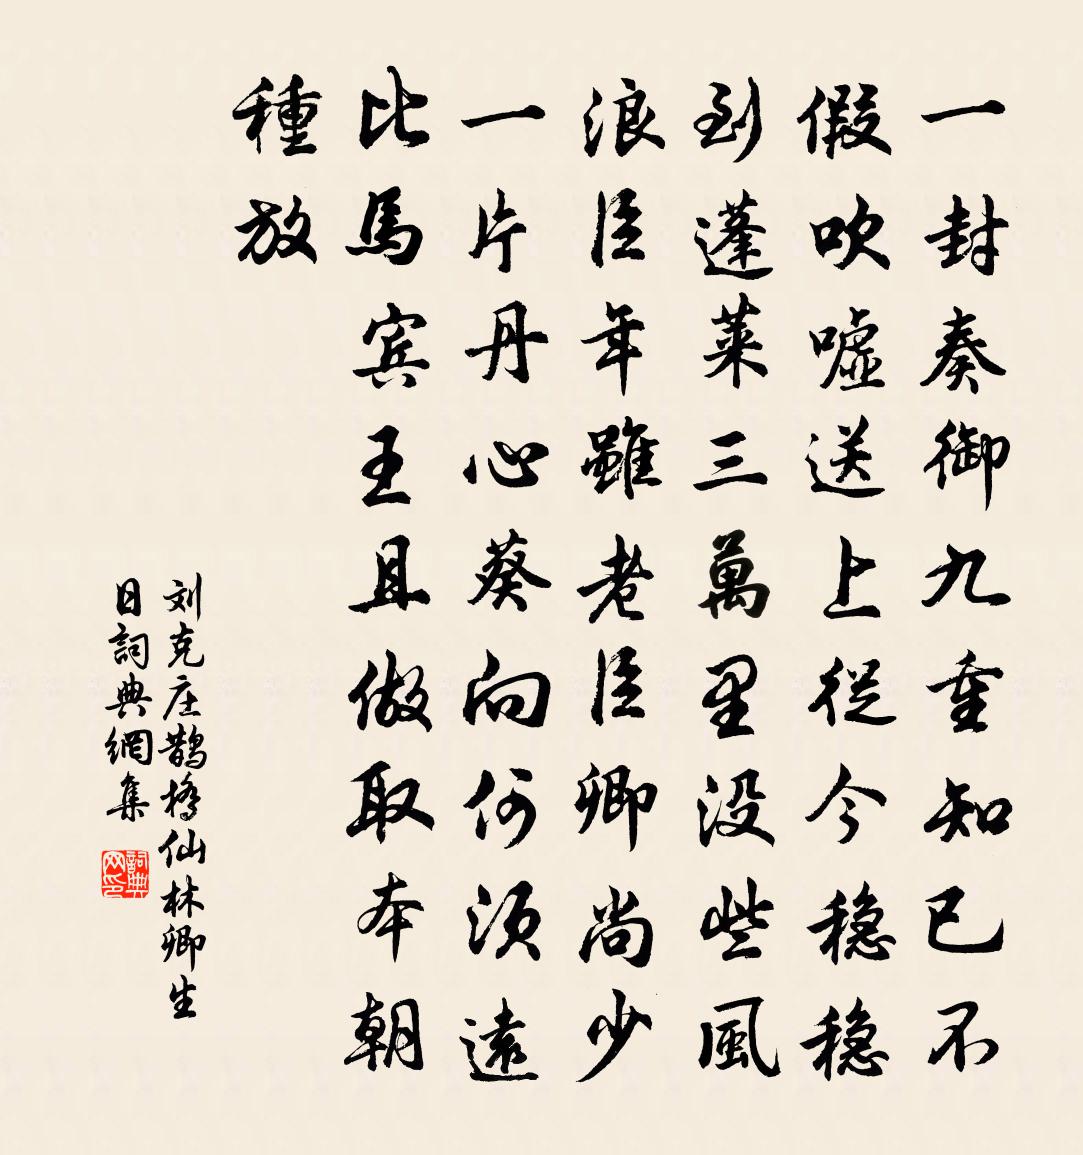 一封奏御九重知已不
假吹嘘送上從今穏穏
到蓬萊三萬里没些風
浪臣年雖老臣卿尚少
一片丹心葵向何須遠
比馬賓王且做取本朝
種放
刘克庄鵲橋仙林卿生
日詞典網集
詞典网印